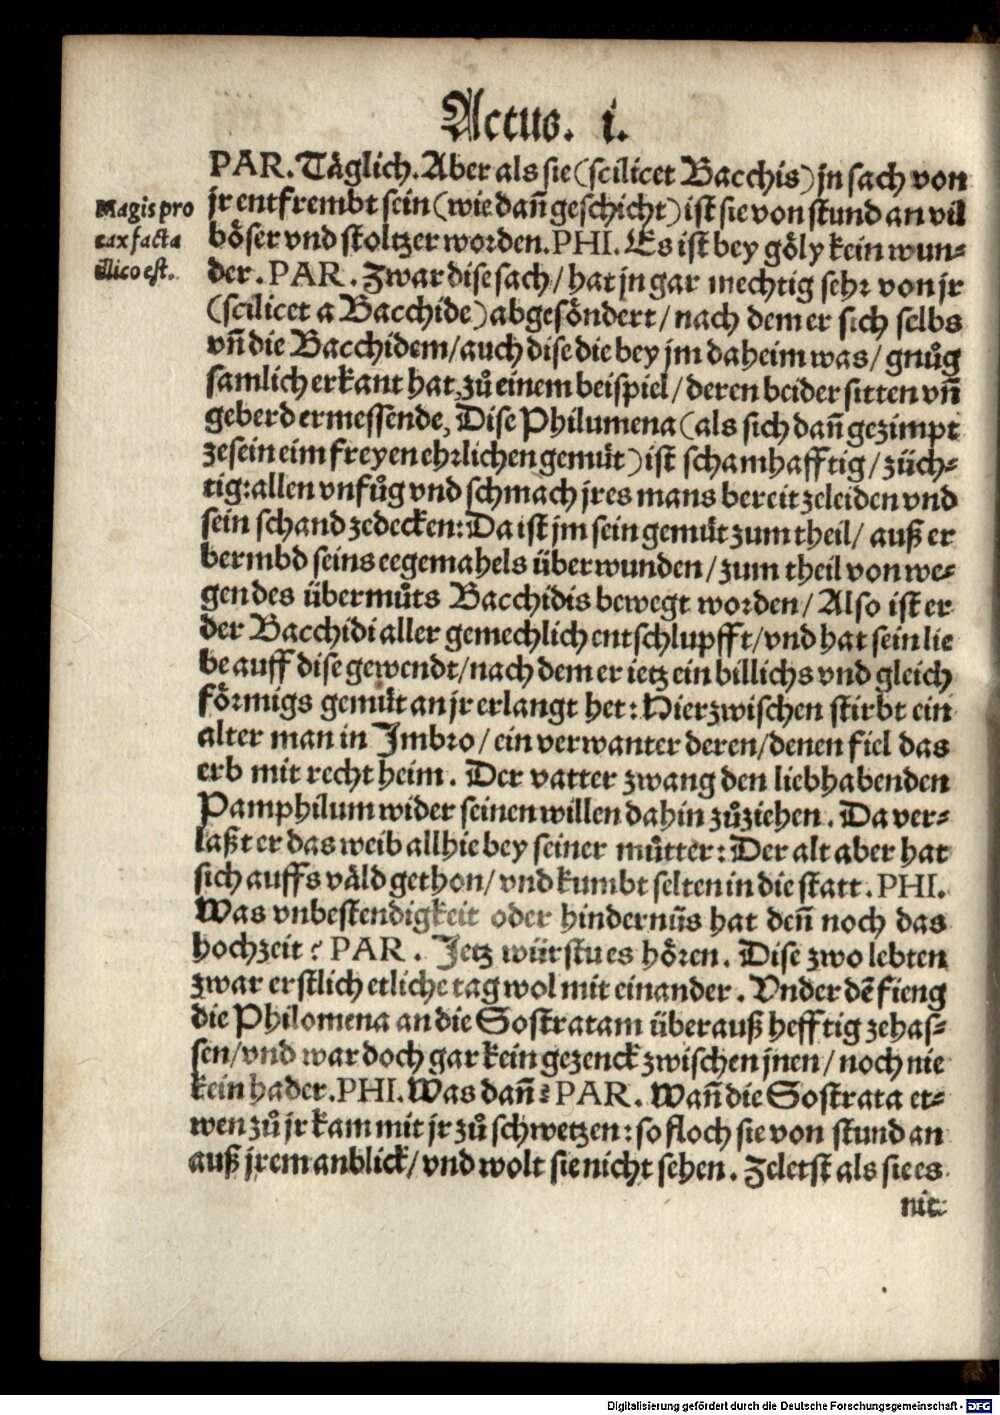 Actus. i.
PAR. Täglich. Aber als sie (scilicet Bacchis) jn sach von
jr entfrembt sein (wie dañ geschicht) ist sie von stund an vil
böser vnd stoltzer worden. PHI. Es ist bey göly kein wun-
der. PAR. Zwar dise sach / hat jn gar mechtig sehr von jr
(scilicet a Bacchide) abgesöndert / nach dem er sich selbs
vñ die Bacchidem / auch dise die bey jm daheim was / gnůg
samlich erkant hat, zů einem beispiel / deren beider sitten vñ
geberd ermessende, Dise Philumena (als sich dañ gezimpt
ze sein eim freyen ehrlichen gemüt) ist schamhafftig / züch-
tig: allen vnfůg vnd schmach jres mans bereit zeleiden vnd
sein schand zedecken: Da ist jm sein gemüt zum theil / auß er
bermbd seins eegemahels überwunden / zum theil von we-
gen des übermůts Bacchidis bewegt worden / Also ist er
der Bacchidi aller gemechlich entschlupfft / vnd hat sein lie
be auff dise gewendt / nach dem er ietz ein billichs vnd gleich
förmigs gemüt an jr erlangt het: Hierzwischen stirbt ein
alter man in Imbro / ein verwanter deren / denen fiel das
erb mit recht heim. Der vatter zwang den liebhabenden
Pamphilum wider seinen willen dahin zůziehen. Da ver-
laßt er das weib allhie bey seiner můtter: Der alt aber hat
sich auffs väld gethon / vnd kumbt selten in die statt. PHI.
Was vnbestendigkeit oder hindernüs hat deñ noch das
hochzeit? PAR. Jetz würstu es hören. Dise zwo lebten
zwar erstlich etliche tag wol mit einander. Vnder dẽ fieng
die Philomena an die Sostratam überauß hefftig zehas-
sen / vnd war doch gar kein gezenck zwischen jnen / noch nie
kein hader. PHI. Was dañ? PAR. Wañ die Sostrata et-
wen zů jr kam mit jr zů schwetzen: so floch sie von stund an
auß jrem anblick / vnd wolt sie nicht sehen. Zeletst als sie es
nit
Magis pro
cax facta
illico est.
Digitalisierung gefördert durch die Deutsche Forschungsgemeinschaft - DFG